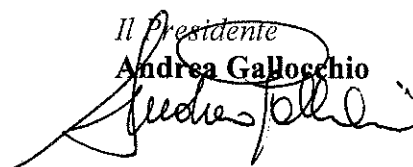 Il Presidente
Andrea Gallocchio